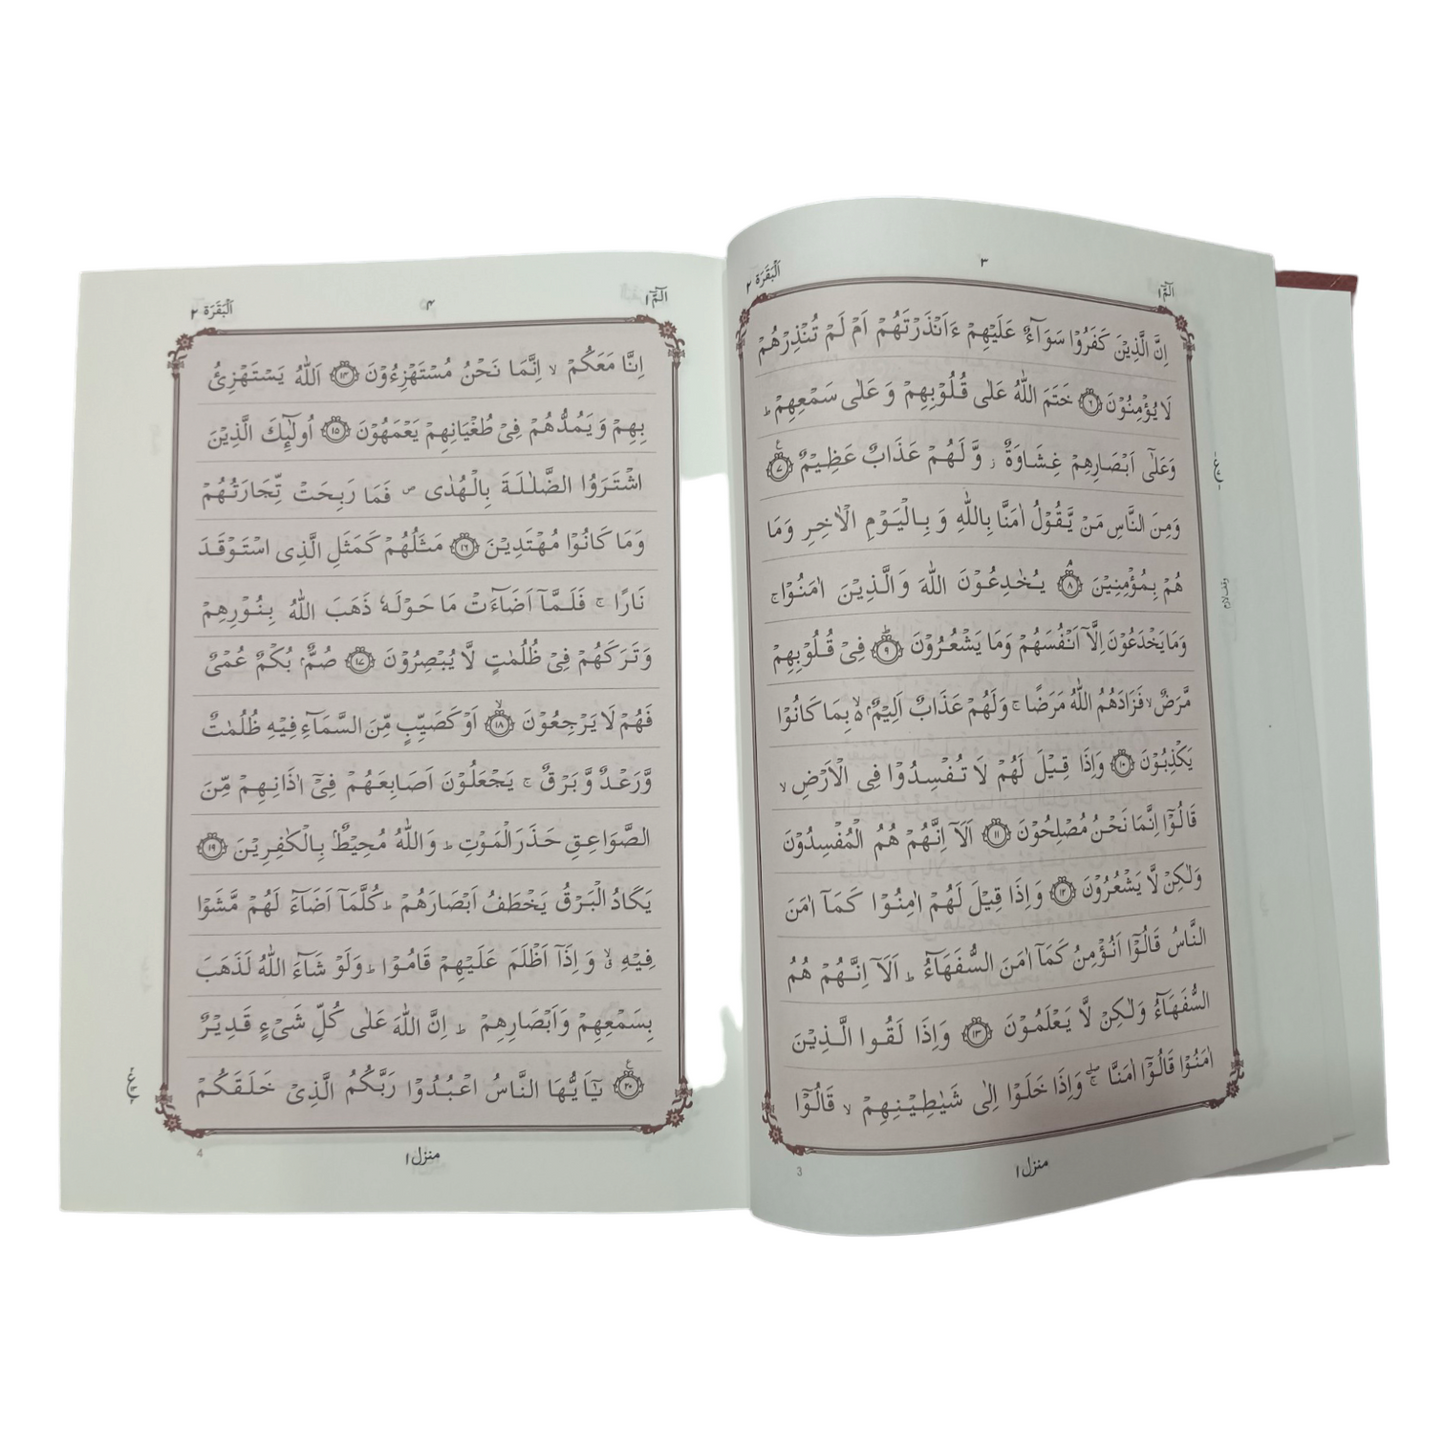 الٓمّٓ ١
٣
اَلْبَقَرَة ٢
اِنَّ الَّذِيْنَ كَفَرُوْا سَوَآءٌ عَلَيْهِمْ ءَاَنْذَرْتَهُمْ اَمْ لَمْ تُنْذِرْهُمْ
لَا يُؤْمِنُوْنَ ۝٦ خَتَمَ اللّٰهُ عَلٰى قُلُوْبِهِمْ وَ عَلٰى سَمْعِهِمْ ؕ
وَعَلٰٓى اَبْصَارِهِمْ غِشَاوَةٌ ز وَّ لَهُمْ عَذَابٌ عَظِيْمٌ ۝٧ ع
وَمِنَ النَّاسِ مَنْ يَّقُوْلُ اٰمَنَّا بِاللّٰهِ وَ بِالْيَوْمِ الْاٰخِرِ وَمَا
هُمْ بِمُؤْمِنِيْنَ ۝٨ۘ يُخٰدِعُوْنَ اللّٰهَ وَالَّذِيْنَ اٰمَنُوْا ۚ
وَمَا يَخْدَعُوْنَ اِلَّآ اَنْفُسَهُمْ وَمَا يَشْعُرُوْنَ ۝٩ؕ فِيْ قُلُوْبِهِمْ
مَّرَضٌ ۙ فَزَادَهُمُ اللّٰهُ مَرَضًا ۚ وَلَهُمْ عَذَابٌ اَلِيْمٌۢ ۙ۵ بِمَا كَانُوْا
يَكْذِبُوْنَ ۝١٠ وَاِذَا قِيْلَ لَهُمْ لَا تُفْسِدُوْا فِى الْاَرْضِ ۙ
قَالُوْٓا اِنَّمَا نَحْنُ مُصْلِحُوْنَ ۝١١ اَلَآ اِنَّهُمْ هُمُ الْمُفْسِدُوْنَ
وَلٰكِنْ لَّا يَشْعُرُوْنَ ۝١٢ وَاِذَا قِيْلَ لَهُمْ اٰمِنُوْا كَمَآ اٰمَنَ
النَّاسُ قَالُوْٓا اَنُؤْمِنُ كَمَآ اٰمَنَ السُّفَهَآءُ ؕ اَلَآ اِنَّهُمْ هُمُ
السُّفَهَآءُ وَلٰكِنْ لَّا يَعْلَمُوْنَ ۝١٣ وَاِذَا لَقُوا الَّذِيْنَ
اٰمَنُوْا قَالُوْٓا اٰمَنَّا ۖۚ وَاِذَا خَلَوْا اِلٰى شَيٰطِيْنِهِمْ ۙ قَالُوْٓا
وقف لازم
منزل ١
3
الٓمّٓ ١
٤
اَلْبَقَرَة ٢
اِنَّا مَعَكُمْ ۙ اِنَّمَا نَحْنُ مُسْتَهْزِءُوْنَ ۝١٤ اَللّٰهُ يَسْتَهْزِئُ
بِهِمْ وَيَمُدُّهُمْ فِيْ طُغْيَانِهِمْ يَعْمَهُوْنَ ۝١٥ اُولٰٓئِكَ الَّذِيْنَ
اشْتَرَوُا الضَّلٰلَةَ بِالْهُدٰى ص فَمَا رَبِحَتْ تِّجَارَتُهُمْ
وَمَا كَانُوْا مُهْتَدِيْنَ ۝١٦ مَثَلُهُمْ كَمَثَلِ الَّذِى اسْتَوْقَدَ
نَارًا ۚ فَلَمَّآ اَضَآءَتْ مَا حَوْلَهٗ ذَهَبَ اللّٰهُ بِنُوْرِهِمْ
وَتَرَكَهُمْ فِيْ ظُلُمٰتٍ لَّا يُبْصِرُوْنَ ۝١٧ صُمٌّۢ بُكْمٌ عُمْيٌ
فَهُمْ لَا يَرْجِعُوْنَ ۝١٨ۙ اَوْ كَصَيِّبٍ مِّنَ السَّمَآءِ فِيْهِ ظُلُمٰتٌ
وَّرَعْدٌ وَّ بَرْقٌ ۚ يَجْعَلُوْنَ اَصَابِعَهُمْ فِيْٓ اٰذَانِهِمْ مِّنَ
الصَّوَاعِقِ حَذَرَ الْمَوْتِ ؕ وَاللّٰهُ مُحِيْطٌۢ بِالْكٰفِرِيْنَ ۝١٩
يَكَادُ الْبَرْقُ يَخْطَفُ اَبْصَارَهُمْ ؕ كُلَّمَآ اَضَآءَ لَهُمْ مَّشَوْا
فِيْهِ ۙ وَ اِذَآ اَظْلَمَ عَلَيْهِمْ قَامُوْا ؕ وَلَوْ شَآءَ اللّٰهُ لَذَهَبَ
بِسَمْعِهِمْ وَاَبْصَارِهِمْ ؕ اِنَّ اللّٰهَ عَلٰى كُلِّ شَيْءٍ قَدِيْرٌ
۝٢٠ ع يٰٓاَيُّهَا النَّاسُ اعْبُدُوْا رَبَّكُمُ الَّذِيْ خَلَقَكُمْ
منزل ١
4